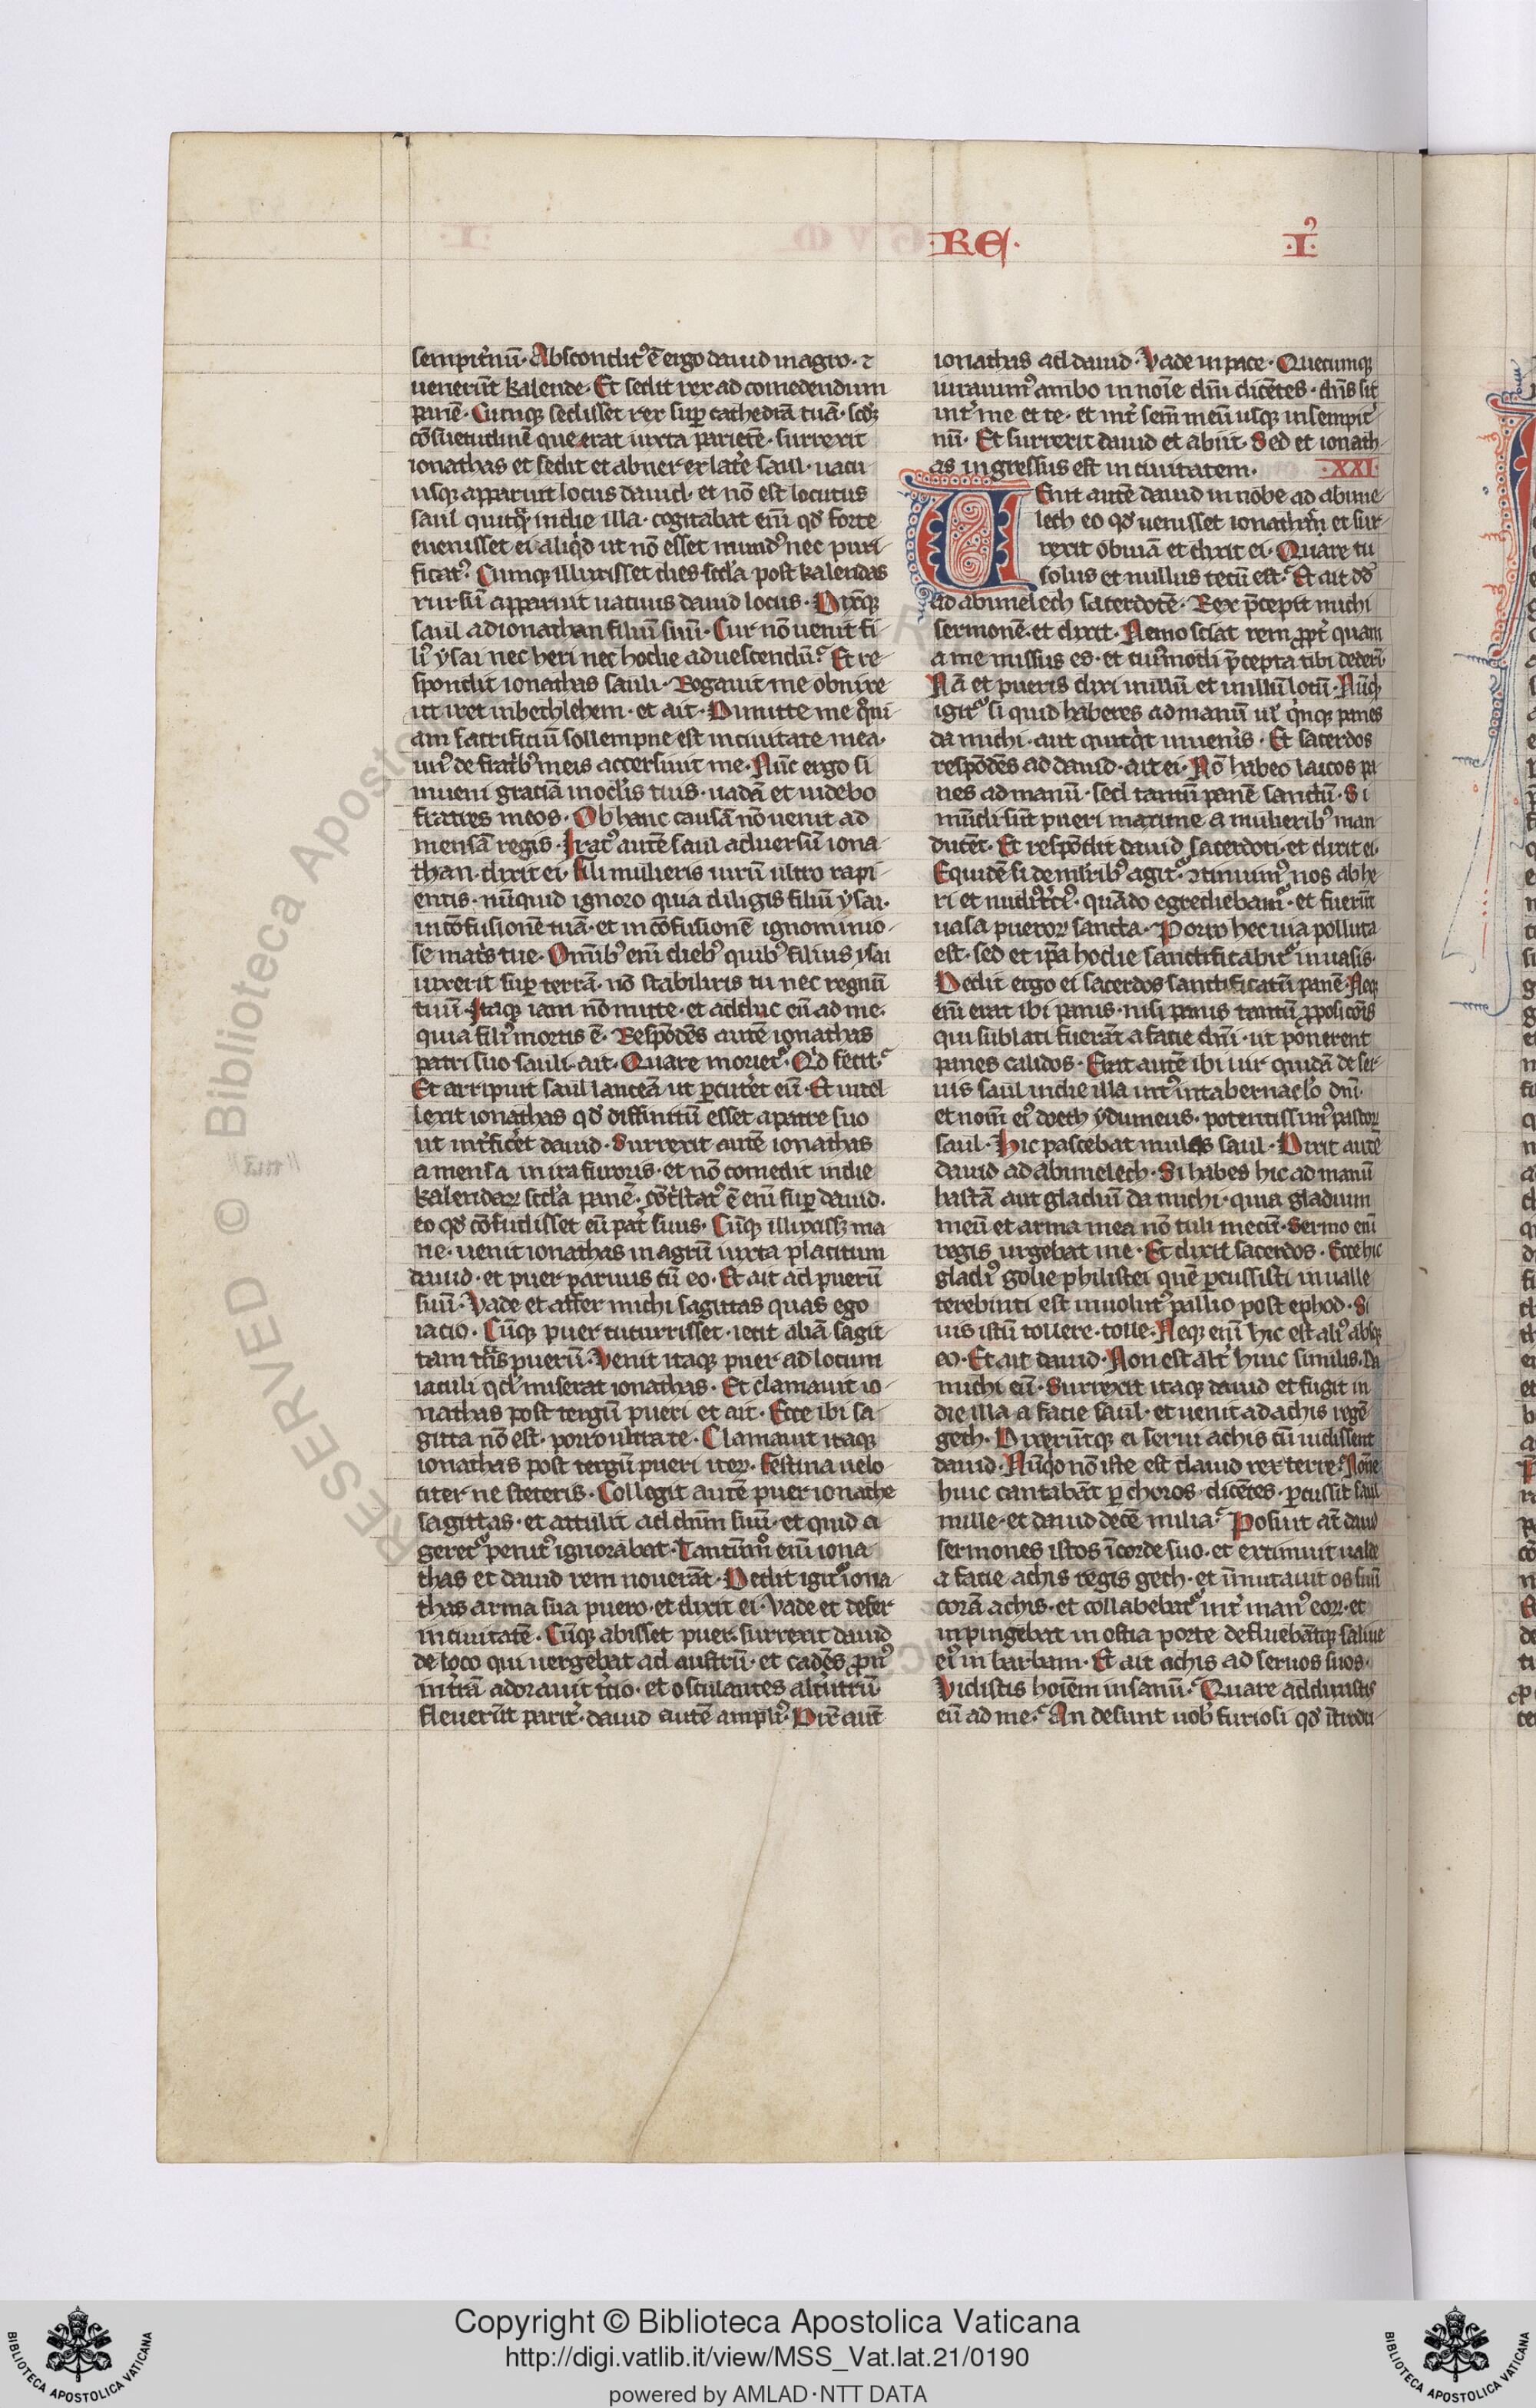 RE. .I.
sempit̾nū. Abscondit᷒ ē ergo dauid in agro. ⁊
uenerūt kalende. Et sedit rex ad comedendum
panē. Cumq; sedisset rex sup cathedrā tuā. scd'ꝫ
cōsuetudinē que erat iuxta parietē. surrexit
ionathas et sedit et abner ex lat̾e saul. uacu
usq; apparuit locus dauid. et nō est locutus
saul quicq̄ in die illa. cogitabat eni qd' forte
euenisset ei aliqd ut nō esset mund᷒ nec puri
ficat᷒. Cumq; illuxisset dies scd'a post kalendas
rursū apparuit uacuus dauid locus. Dixitq;
saul ad ionathan filiū suū. Cur nō uenit fi
li᷒ ysai nec heri nec hodie ad uescendū? Et re
spondit ionathas sauli. Rogauit me obnixe
ut iret in bethlehem. et ait. Dimitte me qni
am sacrificiū sollempne est in ciuitate mea.
un᷒ de fratrib᷒ meis accersiuit me. Nūc ergo si
inueni graciā in oclis tuis. uadā et uidebo
fratres meos. Ob hanc causā nō uenit ad
mensā regis. Irat᷒ autē saul aduersū iona
than. dixit ei. fili mulieris uirū ultro rapi
entis. nūquid ignoro quia diligis filiū ysai.
in cōfusionē tuā. et in cōfusionē ignominio
se mat̾s tue. Omib᷒ eni dieb᷒ quib᷒ filius ysai
uixerit sup terrā. nō stabiliris tu nec regnū
tuū. Itaq; iam nō mitte. et adduc eū ad me.
quia fili᷒ mortis ē. Respōdēs autē ionathas
patri suo sauli. ait. Quare moriet᷒. Qd fecit?
Et arripuit saul lanceā ut pcutet eū. Et intel
lexit ionathas qd' diffinitū esset a patre suo
ut int̾ficet dauid. Surrexit autē ionathas
a mensa in ira furoris. et nō comedit in die
kalendaꝝ scd'a panē. cōtstat᷒ ē eni sup dauid.
eo qd' cōfudisset eū pat̾ suus. Cūq; illuxissꝫ ma
ne. uenit ionathas in agrū iuxta placitum
dauid. et puer paruus cū eo. Et ait ad puerū
suū. Vade et affer michi sagittas quas ego
iacio. Cūq; puer cucurrisset. iecit aliā sagit
tam t̃ns puerū. Venit itaq; puer ad locum
iaculi qd' miserat ionathas. Et clamauit io
nathas post tergū pueri et ait. Ecce ibi sa
gitta nō est. porro ultra te. Clamauit itaq;
ionathas post tergū pueri iteꝝ. festina uelo
citer ne steteris. Collegit autē puer ionathe
sagittas. et attulit ad dnm suū. et quid a
geret᷒ penit᷒ ignorabat. Tantūm᷒ eni iona
thas et dauid rem nouerāt. Dedit igit᷒ iona
thas arma sua puero. et dixit ei. Vade et defer
in ciuitatē. Cūq; abisset puer. surrexit dauid
de loco qui uergebat ad austrū. et cadēs pn᷒
in t̾rā adorauit t̾cio. et osculantes alt̾utrū
fleuerūt parit̾. dauid autē ampli᷒. Dix̄ aut̄
ionathas ad dauid. Vade in pace. Quecumq;
iurauim᷒ ambo in noīe dni dicētes. dns sit
int̾ me et te. et int̾ sem̄ meū usq; in sempit̾
nū. Et surrexit dauid et abiit. Sed et ionath
as ingressus est in ciuitatem. .XXI.
Uenit autē dauid in nobe ad abime
lech eo qd' uenisset ionath᷒n et sur
rexit obuiā et dixit ei. Quare tu
solus et nullus tecū est? Et ait dd'
ad abimelech sacerdotē. Rex p̄cepit michi
sermonē. et dixit. Nemo sciat rem ppt̾ quam
a me missus es. et cui᷒modi p̄cepta tibi dederi.
Nā et pueris dixi in illū et in illū locū. Nūc
igit᷒ si quid habes ad manū ul' qinq; panes
da michi. aut quicqt inuen̾is. Et sacerdos
respōdēs ad dauid. ait ei. Nō habeo laicos pa
nes ad manū. sed tantū panē sanctū. Si
mūdi sūt pueri maxime a mulierib᷒ man
ducēt. Et respōdit dauid sacerdoti. et dixit ei.
Equidē si de mlrib᷒ agit᷒. ↄtinuim᷒ nos ab he
ri et nudi᷒t̾ci᷒. quādo egrediebam᷒. et fuerūt
uasa pueroꝝ sancta. Porro hec uia polluta
est. sed et ipa hodie sanctificabit᷒ in uasis.
Dedit ergo ei sacerdos sanctificatū panē. Neq;
eni erat ibi panis. nisi panis tantū pposicōis
qui sublati fuerāt a facie dni. ut ponerent
panes calidos. Erat autē ibi uir quidā de ser
uis saul in die illa int᷒ in tabernaclo dni.
et nom̄ ei᷒ doech ydumeus. potentissim᷒ pastoꝝ
saul. Hic pascebat mulas saul. Dixit autē
dauid ad abimelech. Si habes hic ad manū
hastā aut gladiū da michi. quia gladium
meū et arma mea nō tuli mecū. Sermo eni
regis urgebat me. Et dixit sacerdos. Ecce hic
gladi᷒ golie philistei quē pcussisti in ualle
terebinti est inuolut᷒ pallio post ephod. Si
uis istū tollere. tolle. Neq; eni hic est ali᷒ absq;
eo. Et ait dauid. Non est alt̾ huic similis. Da
michi eū. Surrexit itaq; dauid et fugit in
die illa a facie saul. et uenit ad achis regē
geth. Dixerūtq; ei serui achis cū uidissent
dauid. Nūqo nō iste est dauid rex terre? Nōne
huic cantabāt p choros. dicētes. pcussit saul
mille. et dauid decē milia? Posuit at̄ dauid
sermones istos ī corde suo. et extimuit ualde
a facie achis regis geth. et īmutauit os suū
corā achis. et collabebat᷒ int̾ man᷒ eoꝝ. et
inpingebat in ostia porte defluebātq; saliue
ei᷒ in barbam. Et ait achis ad seruos suos.
Vidistis hoiem insanū. Quare adduxistis
eū ad me? An desunt uob' furiosi qd' ītrodu